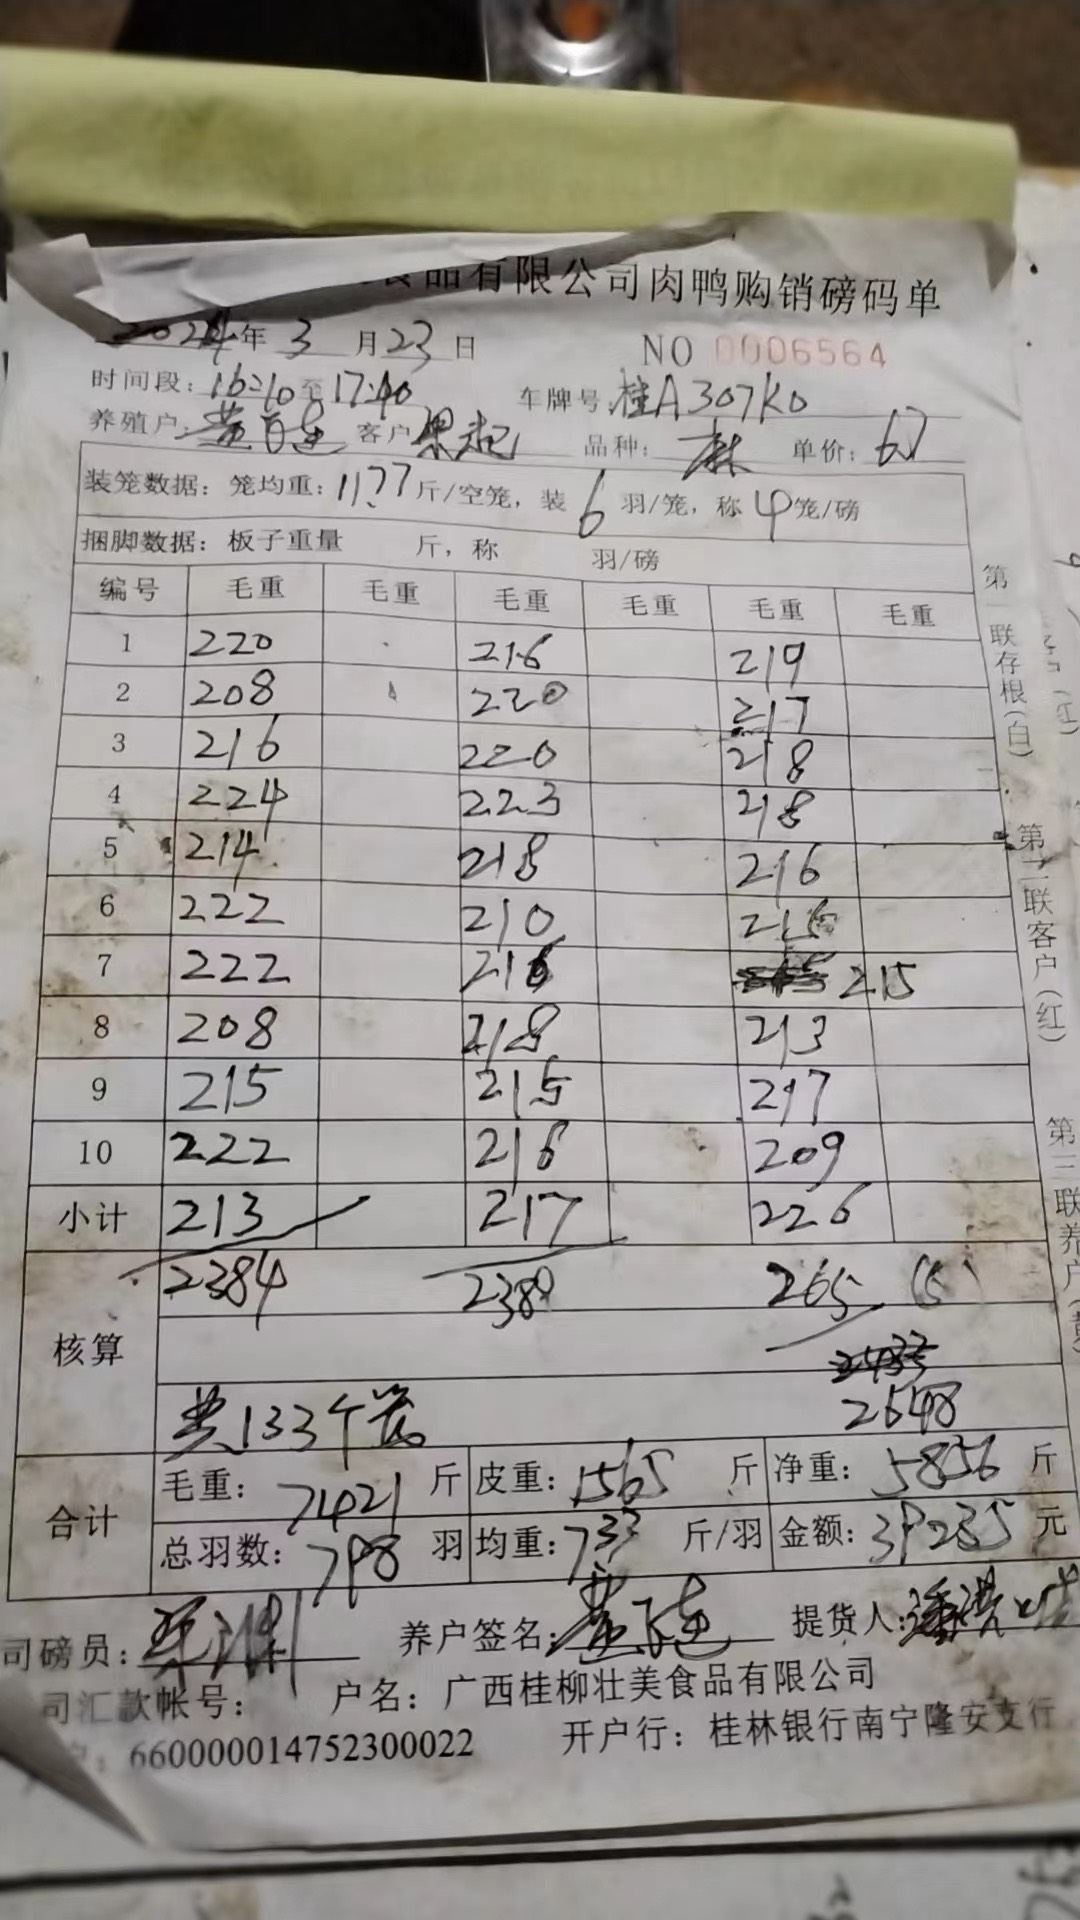 食品有限公司肉鸭购销磅码单
2024年 3 月 23 日 NO 0006564
时间段：16:10至17:40 车牌号 桂A307K0
养殖户： 客户 品种：麻 单价：6.7
装笼数据：笼均重：11.77斤/空笼，装 6 羽/笼，称 4 笼/磅
捆脚数据：板子重量 斤，称 羽/磅
编号 毛重 毛重 毛重 毛重 毛重 毛重
1 220 216 219
2 208 220 217
3 216 220 218
4 224 223 218
5 214 218 216
6 222 210
7 222 216 215
8 208 218 213
9 215 215 217
10 222 216 209
小计 213 217 226
2384 2389 265 (5)
核算
共133个笼 2648
合计 毛重：7421 斤 皮重：1565 斤 净重：5856 斤
总羽数：798 羽 均重：7.33 斤/羽 金额：39235 元
司磅员： 养户签名： 提货人：
司汇款帐号： 户名：广西桂柳壮美食品有限公司
户：660000014752300022 开户行：桂林银行南宁隆安支行
第一联存根(白) 第二联客户(红) 第三联养户(黄)